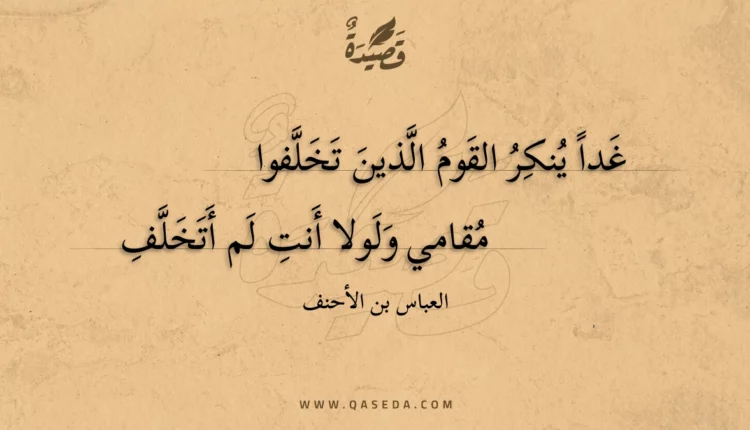 قَصِيْدَةٌ
غَداً يُنكِرُ القَومُ الَّذينَ تَخَلَّفوا
مُقامي وَلَولا أَنتِ لَم أَتَخَلَّفِ
العباس بن الأحنف
WWW.QASEDA.COM